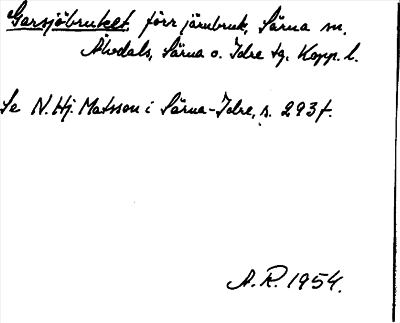 Garsjöbruket, förr järnbruk, Särna sn,
Älvdals, Särna o. Idre tg. Kopp. l.
Se N. Hj. Matsson i Särna-Idre, s. 293f.
A. R. 1954.